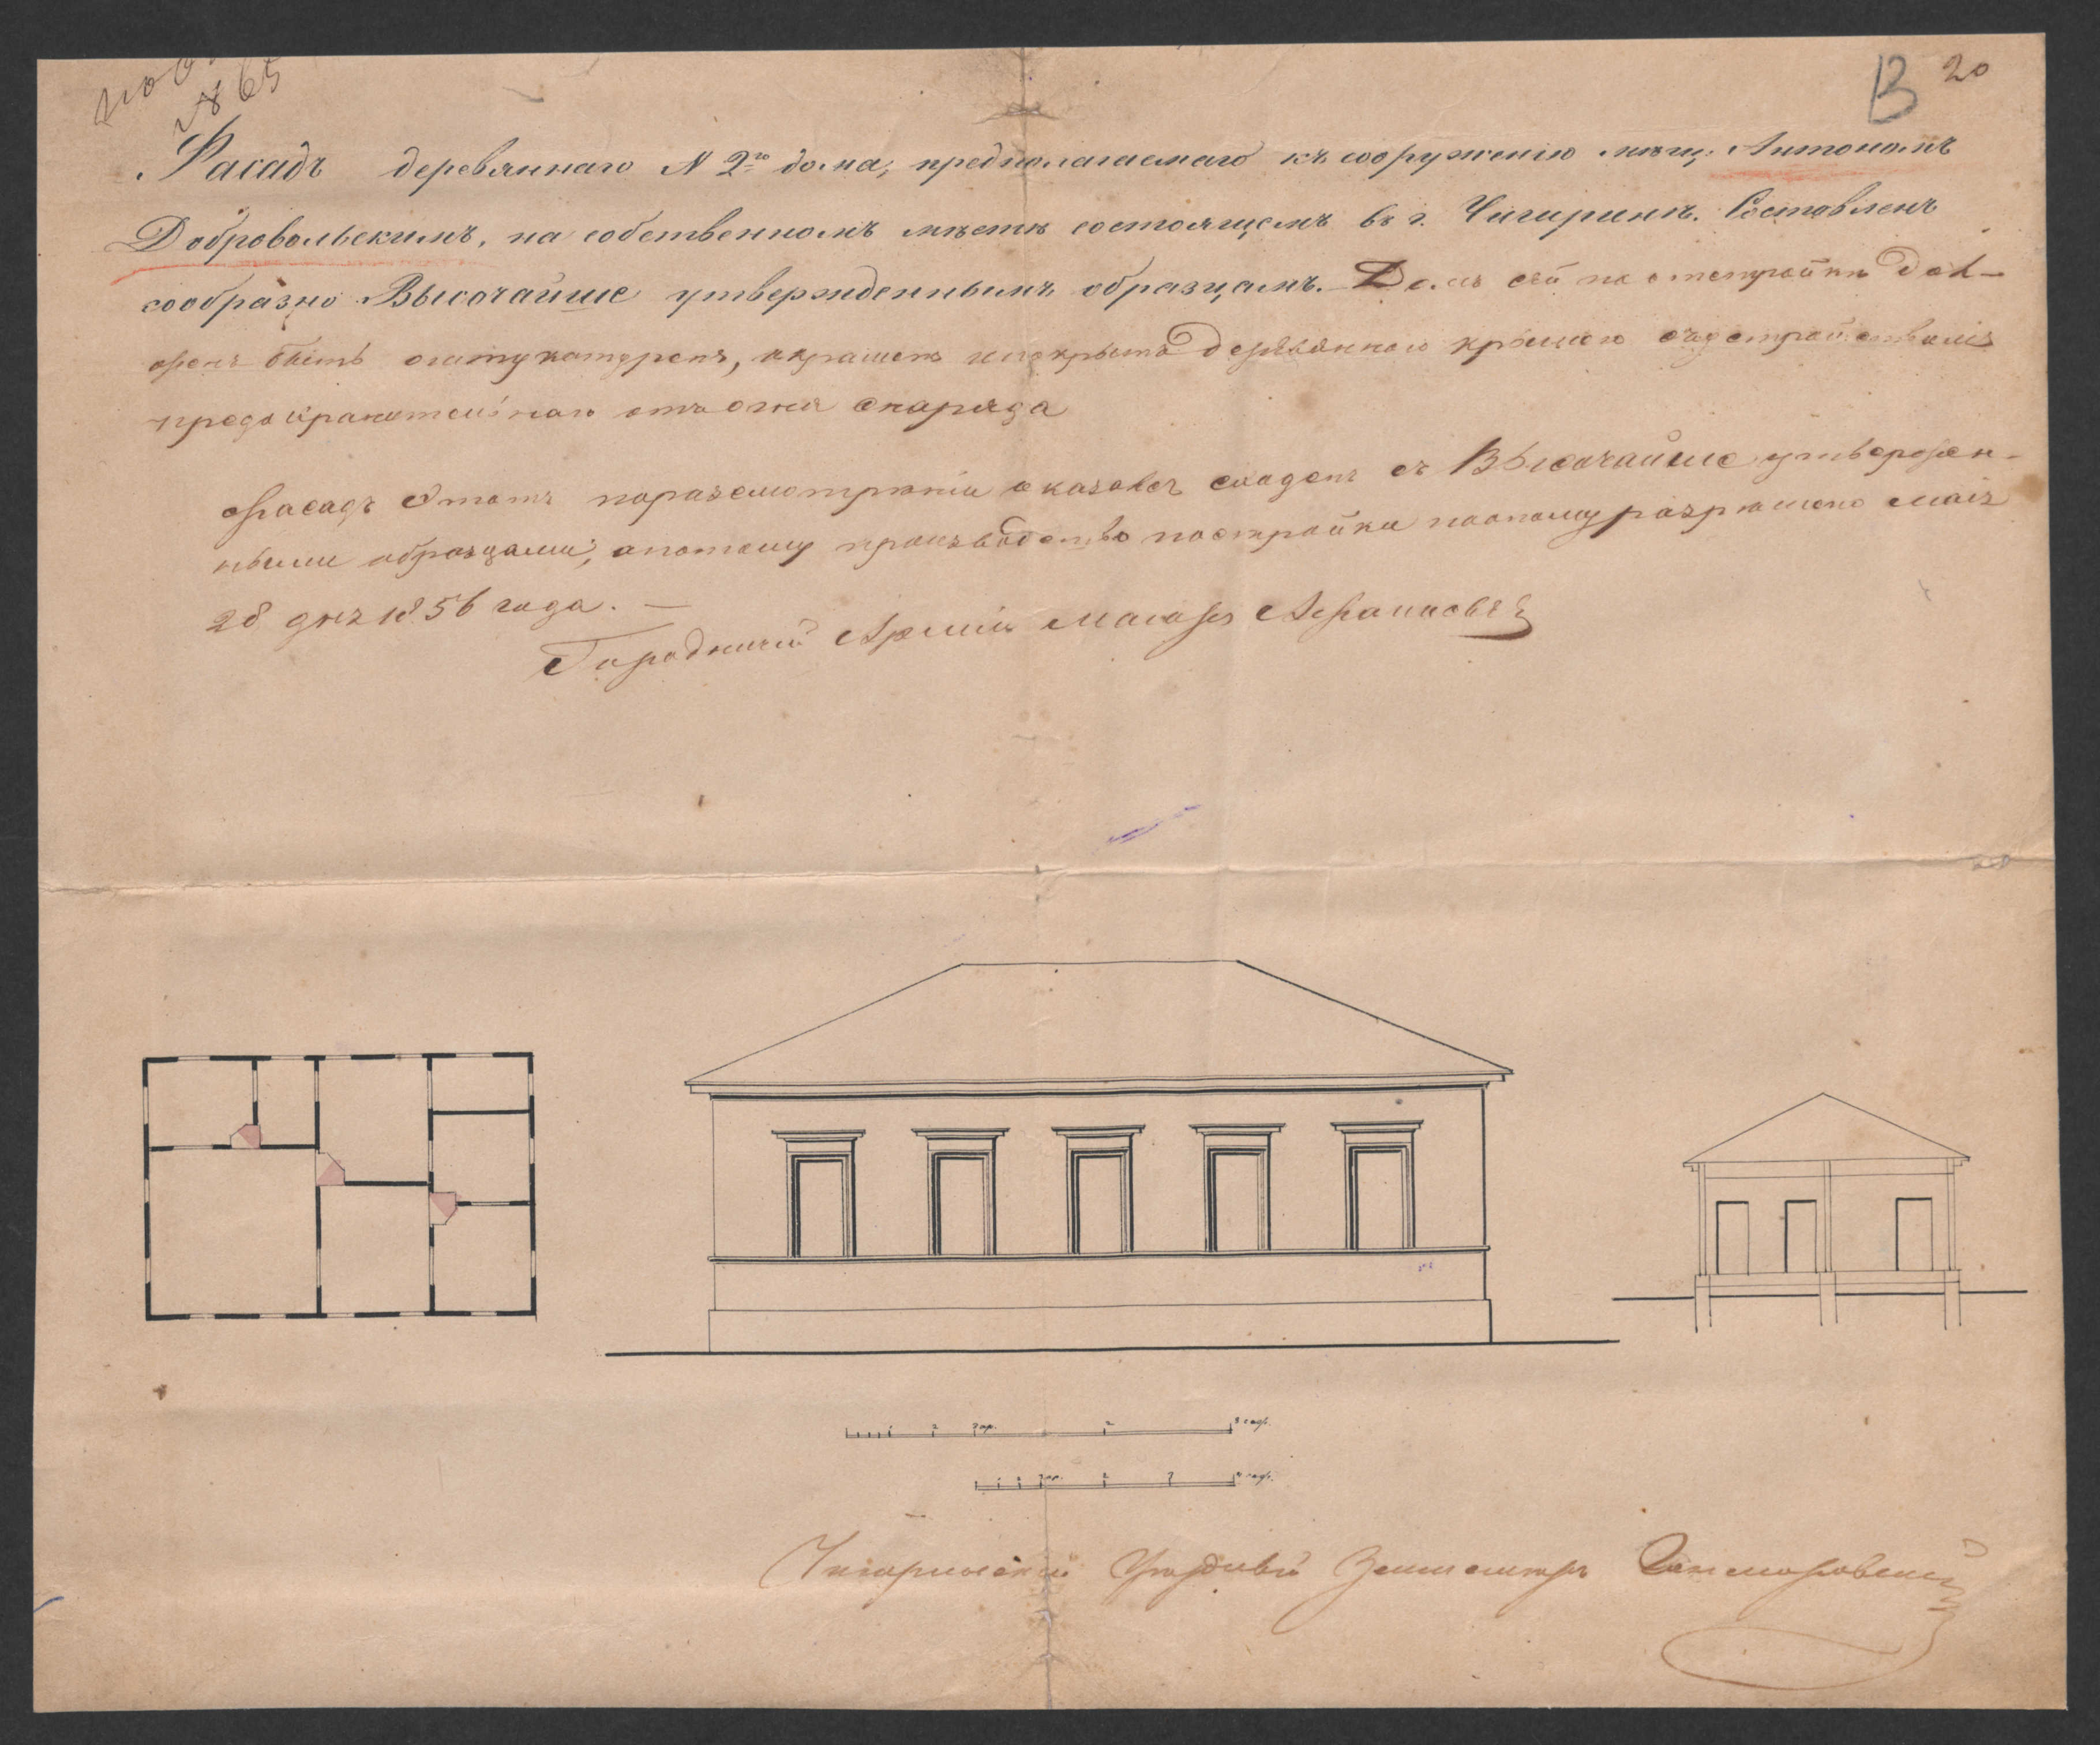 1865
В 20
Фасадъ деревяннаго N 2го дома, предполагаемаго къ сооруженію мѣщ. Антономъ
Добровольскимъ, на собственномъ мѣстѣ состоящемъ въ г. Чигиринѣ. Составленъ
сообразно Высочайше утвержденнымъ образцамъ. Домъ сей по отстройкѣ дол-
женъ быть оштукатуренъ, окрашенъ и покрытъ деревянною крышею съ устройствомъ
предохранительнаго отъ огня снаряда
Фасадъ этотъ по разсмотрѣніи оказался сходенъ съ Высочайше утвержден-
ными образцами, а потому производство постройки по оному разрѣшено Маія
28 дня 1856 года. —
Городничій Арміи Маіоръ
1 2 3 ар. 2 3 саж.
1 2 3 ар. 2 3 4 саж.
Чигиринскій Уѣздный Землемѣръ